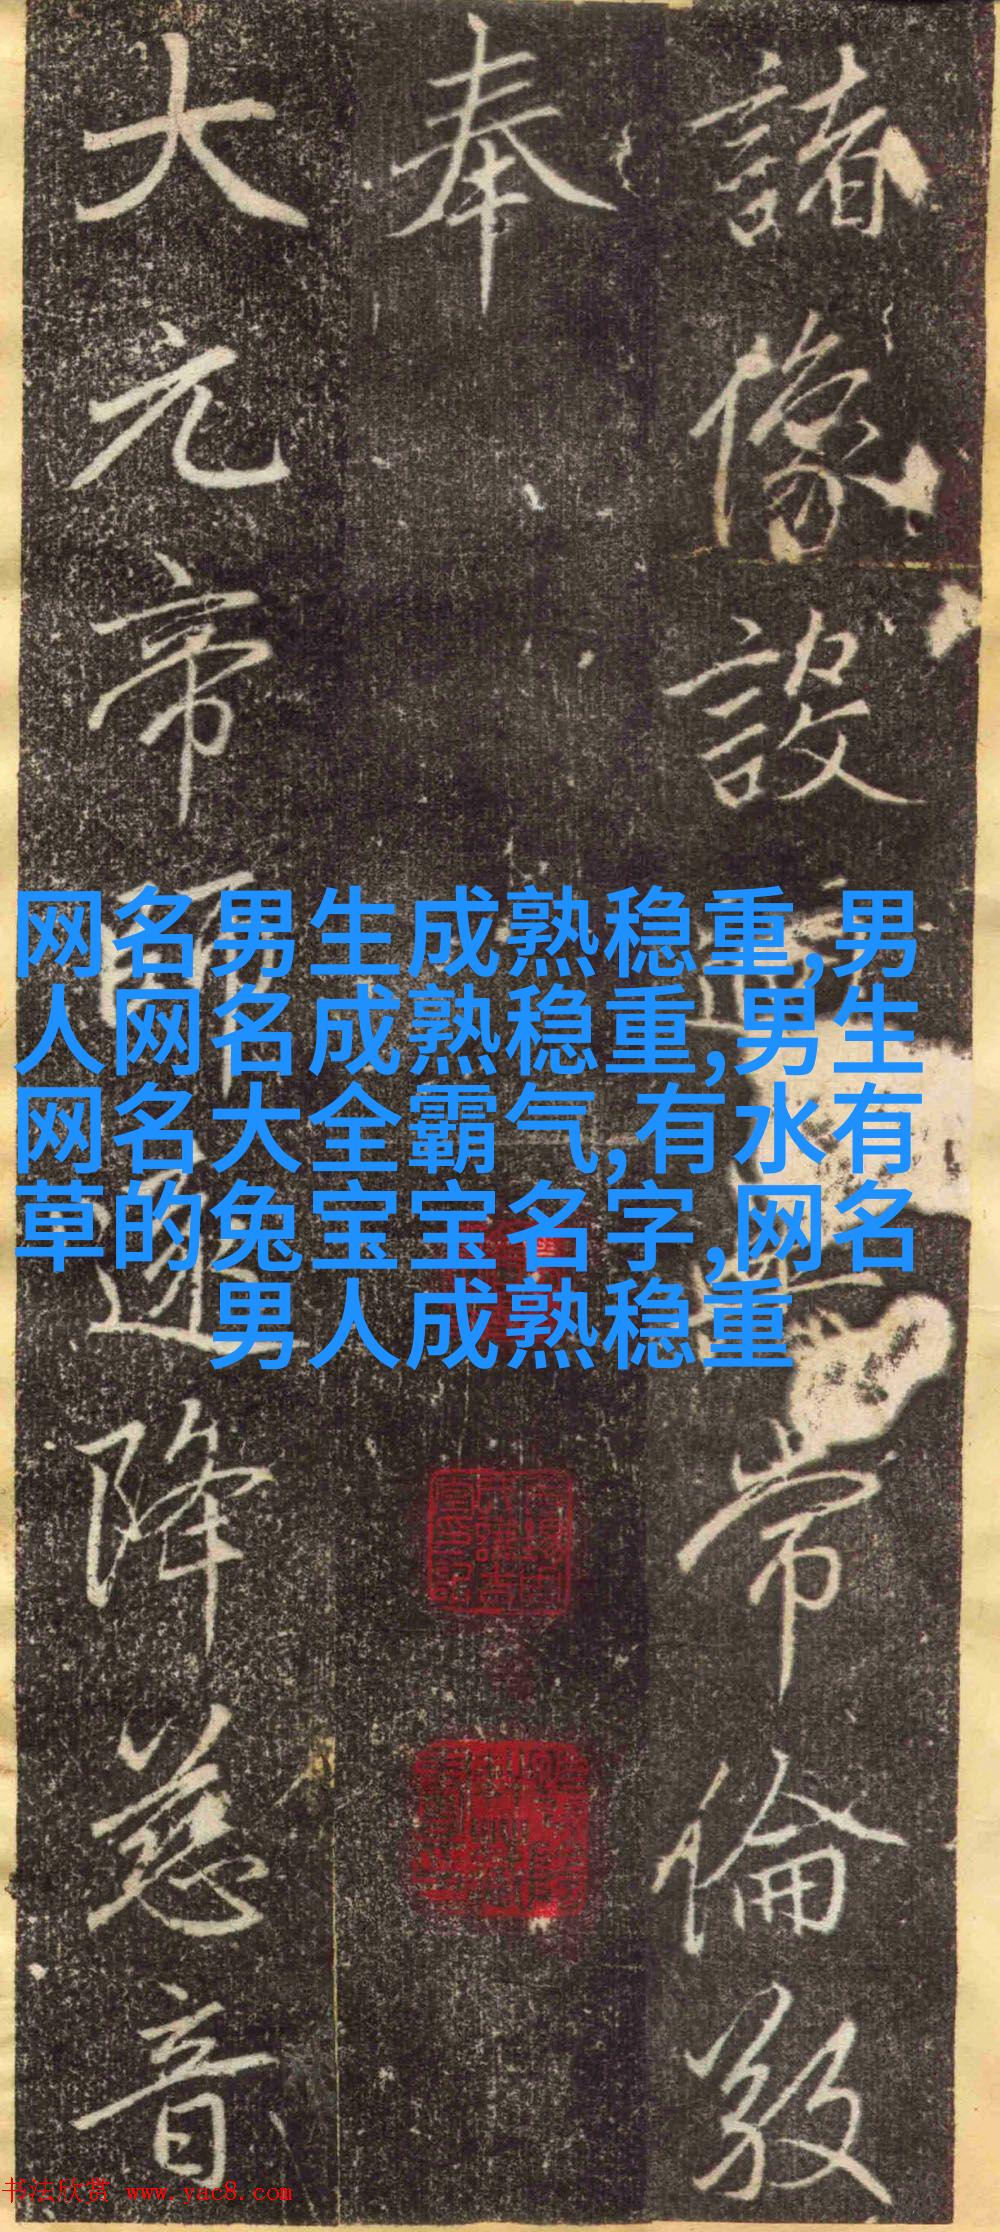 諸像設常倫
奉
大元帝師降慈音
网名男生成熟稳重,男
人网名成熟稳重,男生
网名大全霸气,有水有
草的兔宝宝名字,网名
男人成熟稳重
书法欣赏 www.yac8.com